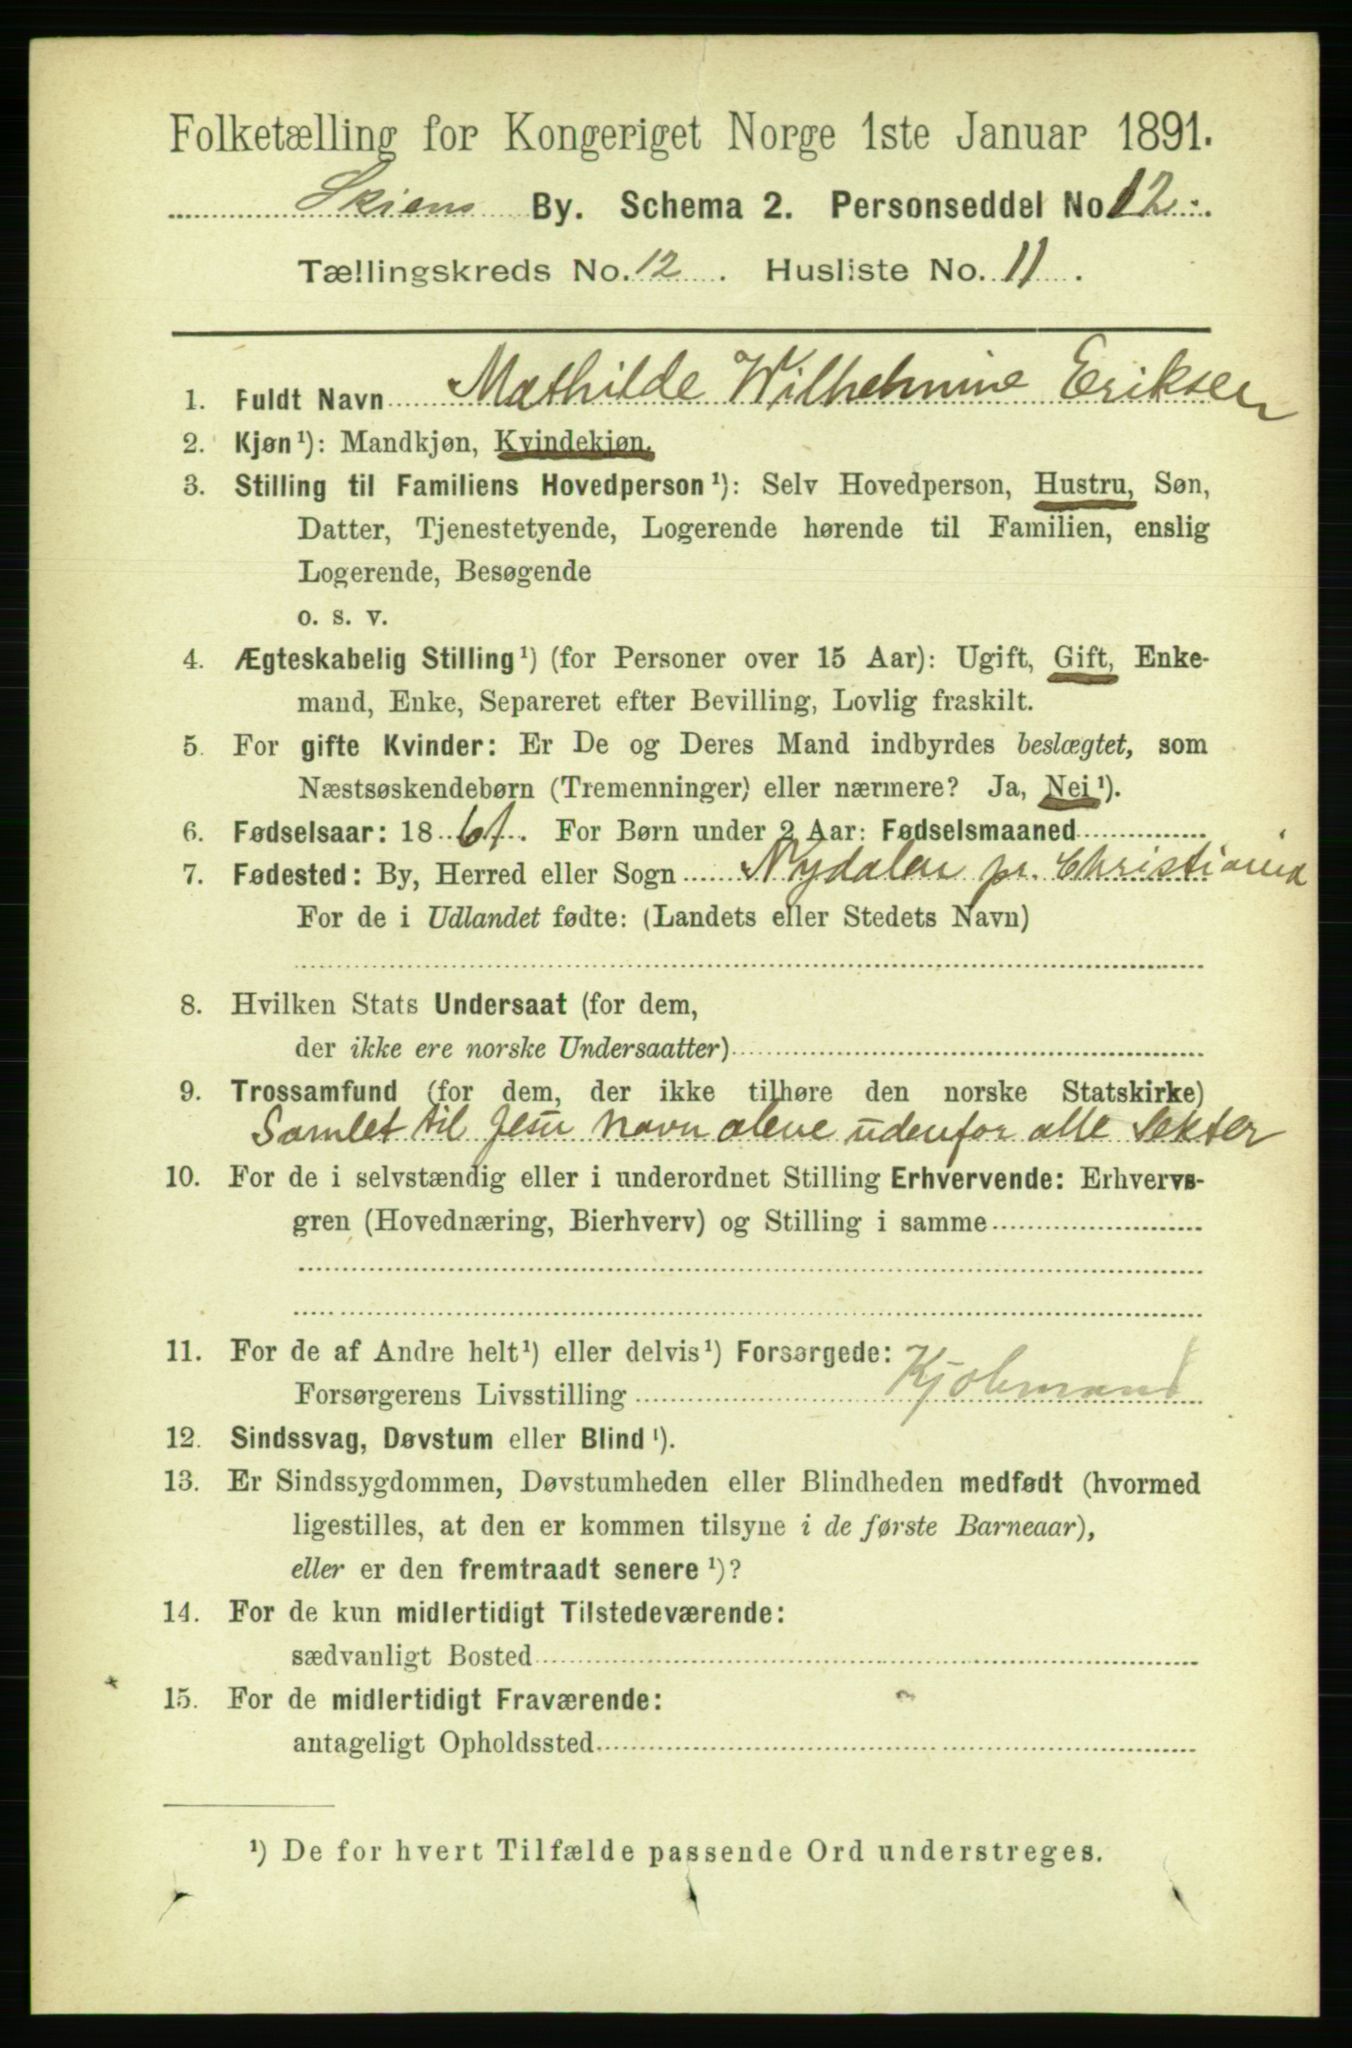 Folketælling for Kongeriget Norge 1ste Januar 1891.
Skiens By. Schema 2. Personseddel No. 12.
Tællingskreds No. 12. Husliste No. 11.
1. Fuldt Navn Mathilde Wilhelmine Eriksen
2. Kjøn¹): Mandkjøn, Kvindekjøn.
3. Stilling til Familiens Hovedperson¹): Selv Hovedperson, Hustru, Søn,
Datter, Tjenestetyende, Logerende hørende til Familien, enslig
Logerende, Besøgende
o. s. v.
4. Ægteskabelig Stilling¹) (for Personer over 15 Aar): Ugift, Gift, Enke-
mand, Enke, Separeret efter Bevilling, Lovlig fraskilt.
5. For gifte Kvinder: Er De og Deres Mand indbyrdes beslægtet, som
Næstsøskendebørn (Tremenninger) eller nærmere? Ja, Nei¹).
6. Fødselsaar: 18 61. For Børn under 2 Aar: Fødselsmaaned
7. Fødested: By, Herred eller Sogn Nydalen pr. Christiania
For de i Udlandet fødte: (Landets eller Stedets Navn)
8. Hvilken Stats Undersaat (for dem,
der ikke ere norske Undersaatter)
9. Trossamfund (for dem, der ikke tilhøre den norske Statskirke)
Samlet til Jesu navn alene udenfor alle Sekter
10. For de i selvstændig eller i underordnet Stilling Erhvervende: Erhvervs-
gren (Hovednæring, Bierhverv) og Stilling i samme
11. For de af Andre helt¹) eller delvis¹) Forsørgede:
Forsørgerens Livsstilling Kjøbmand
12. Sindssvag, Døvstum eller Blind¹).
13. Er Sindssygdommen, Døvstumheden eller Blindheden medfødt (hvormed
ligestilles, at den er kommen tilsyne i de første Barneaar),
eller er den fremtraadt senere¹)?
14. For de kun midlertidigt Tilstedeværende:
sædvanligt Bosted
15. For de midlertidigt Fraværende:
antageligt Opholdssted
¹) De for hvert Tilfælde passende Ord understreges.